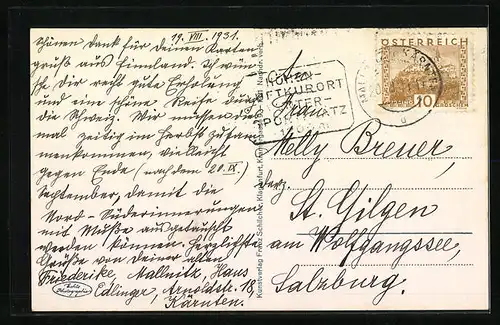 19. VIII. 1931.
Schönen Dank für deinen Karten
gruß aus Finnland. Ich wün=
sche Dir recht gute Erholung
und eine schöne Reise durch
die Schweiz. Wir müssen dies
mal zeitig im Herbst zusam=
menkommen, vielleicht
gegen Ende (nach dem 20. IX)
September, damit die
Nord-Süderinnerungen
mit Muße ausgetauscht
werden können. Herzlichste
Grüße von Deiner alten
Friederike, Mallnitz, Haus
Edlinger, Arnoldstr. 18,
Kärnten.
Kunstverlag Franz Schilcher, Klagenfurt
HÖHEN-
LUFTKURORT
ÖSTERREICH
10 GROSCHEN
Frau
Melly Breuer,
derz.
St. Gilgen
am Wolfgangssee,
Salzburg.